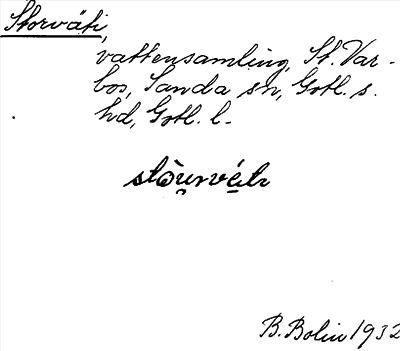 Storväti,
vattensamling, St. Var-
bos, Sanda sn, Gotl. s.
hd, Gotl. l.
B. Bolin 1932